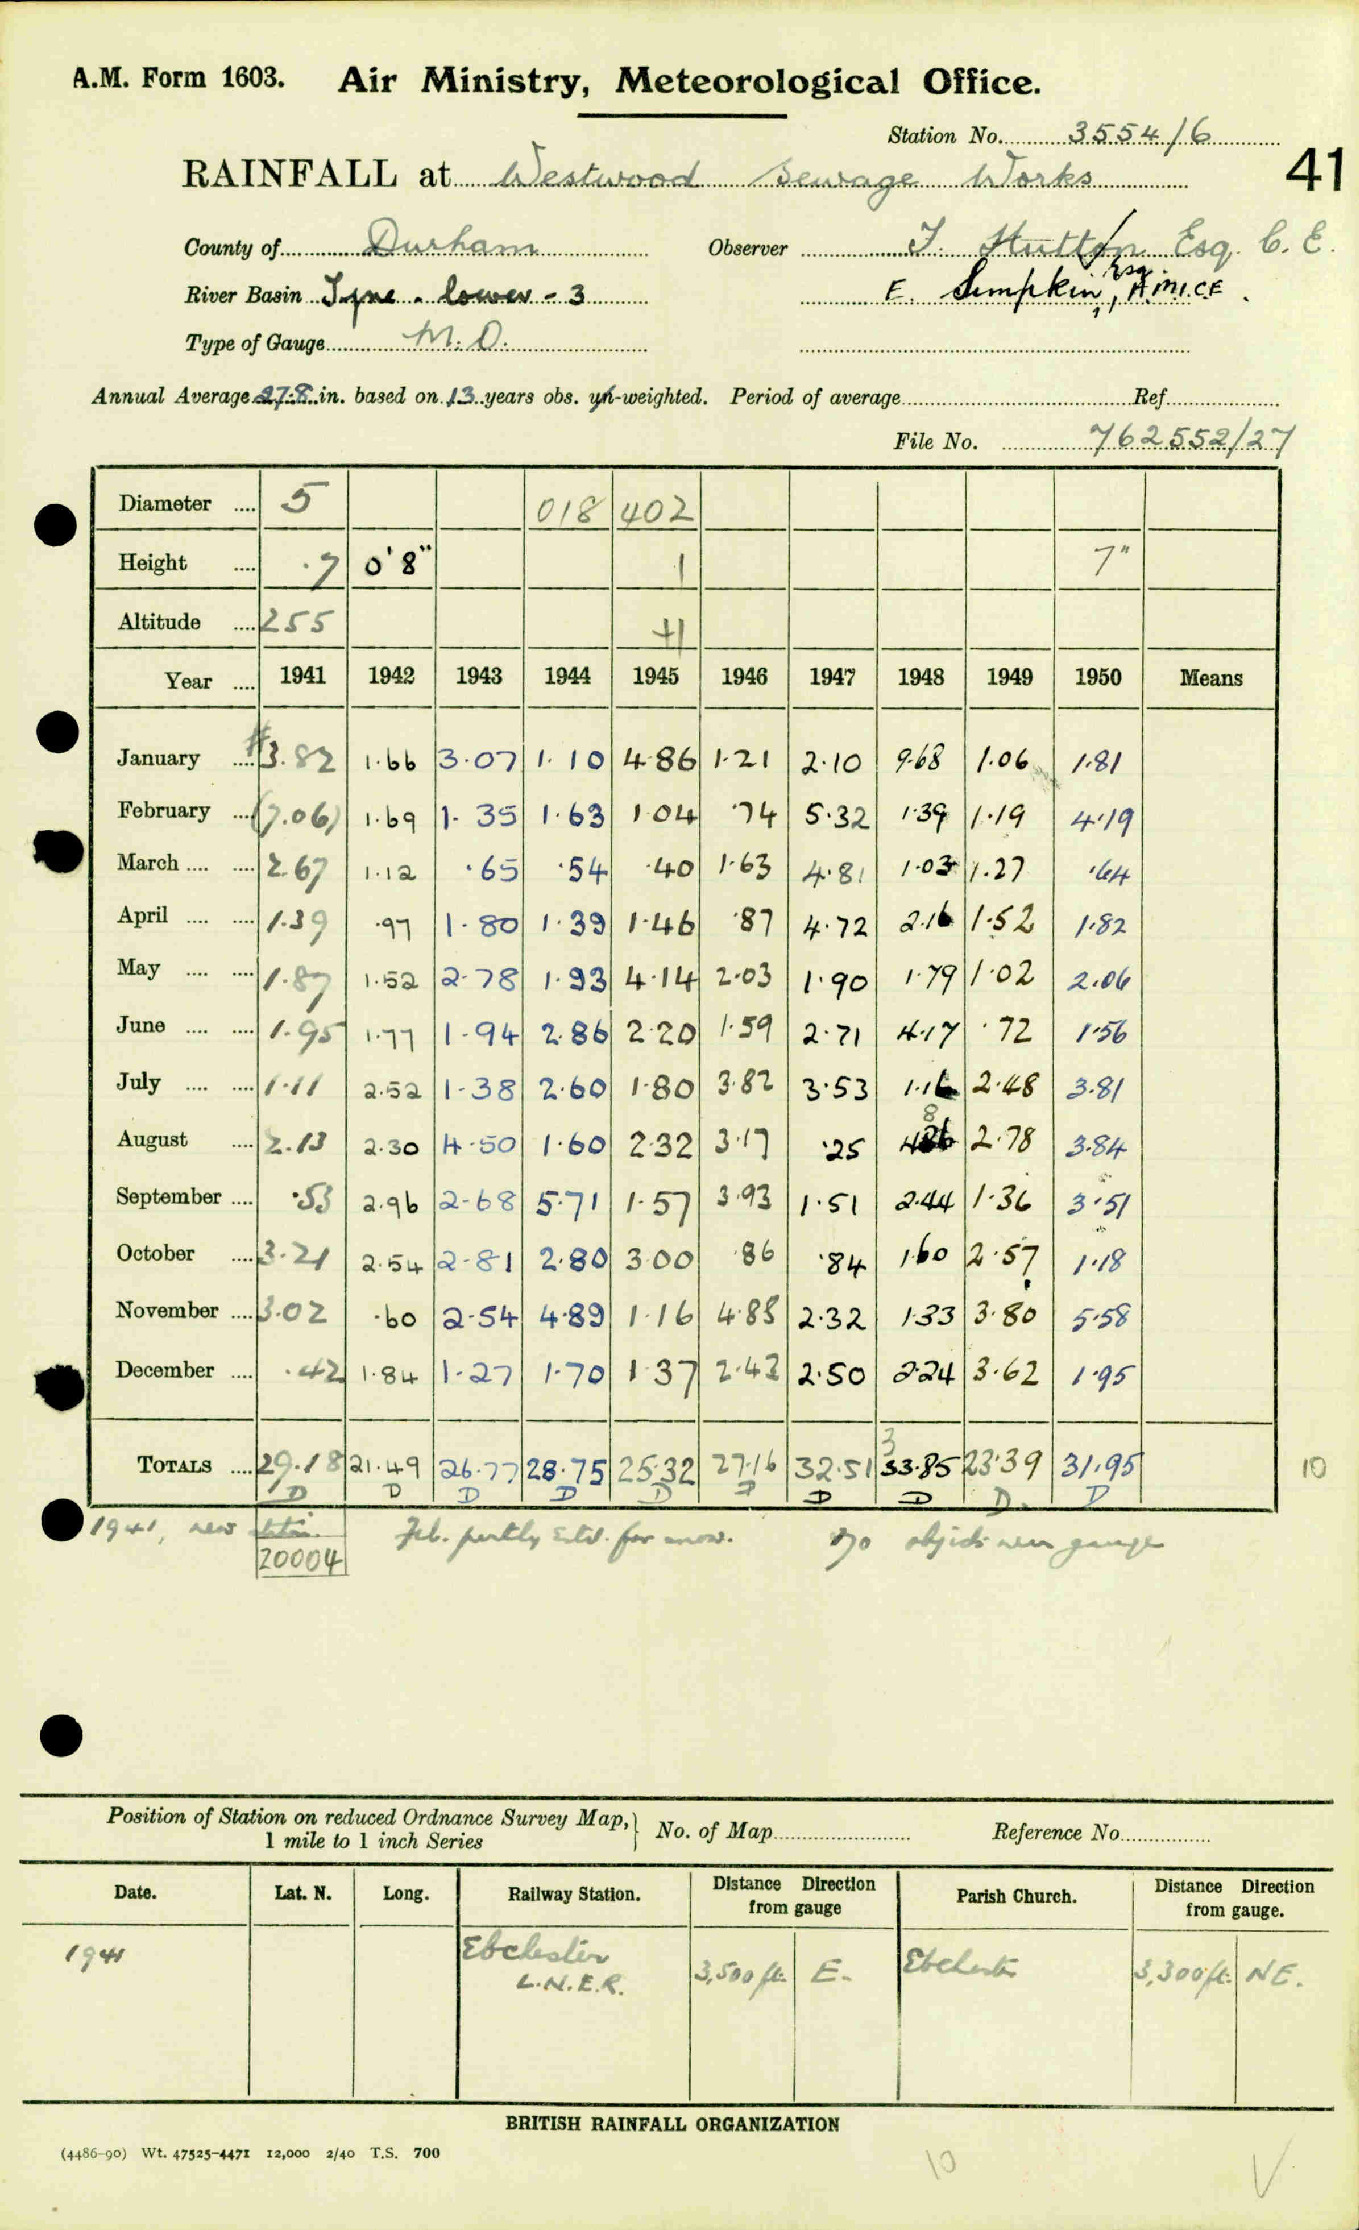 A.M. Form 1603. Air Ministry, Meteorological Office.
Station No. 3554/6
41
RAINFALL at Westwood Sewage Works
County of Durham Observer T. Hutton Esq. C.E.
River Basin Tyne - lower - 3 E. Simpkin, Esq. A.M.I.C.E.
Type of Gauge M.O.
Annual Average 27.8 in. based on 13 years obs. un-weighted. Period of average Ref.
File No. 762552/27
Diameter .... 5 018 402
Height .... .7 0'8" 1 7"
Altitude .... 255 +1
Year .... 1941 1942 1943 1944 1945 1946 1947 1948 1949 1950 Means
January .... #3.82 1.66 3.07 1.10 4.86 1.21 2.10 9.68 1.06 1.81
February .... (7.06) 1.69 1.35 1.63 1.04 .74 5.32 1.39 1.19 4.19
March .... .... 2.67 1.12 .65 .54 .40 1.63 4.81 1.03 1.27 .64
April .... .... 1.39 .97 1.80 1.39 1.46 .87 4.72 2.16 1.52 1.82
May .... .... 1.87 1.52 2.78 1.93 4.14 2.03 1.90 1.79 1.02 2.06
June .... .... 1.95 1.77 1.94 2.86 2.20 1.59 2.71 4.17 .72 1.56
July .... .... 1.11 2.52 1.38 2.60 1.80 3.82 3.53 1.16 2.48 3.81
August .... 2.13 2.30 4.50 1.60 2.32 3.17 .25 2.78 3.84
September .... .53 2.96 2.68 5.71 1.57 3.93 1.51 2.44 1.36 3.51
October .... 3.21 2.54 2.81 2.80 3.00 .86 .84 1.60 2.57 1.18
November .... 3.02 .60 2.54 4.89 1.16 4.88 2.32 1.33 3.80 5.58
December .... .42 1.84 1.27 1.70 1.37 2.43 2.50 2.24 3.62 1.95
TOTALS .... 29.18 21.49 26.77 28.75 25.32 27.16 32.51 33.85 23.39 31.95 10
D D D D D D D D D. D
1941, new station. Feb. partly estd. for snow. No objects near gauge
20004
Position of Station on reduced Ordnance Survey Map,} No. of Map Reference No.
1 mile to 1 inch Series
Date. Lat. N. Long. Railway Station. Distance Direction from gauge Parish Church. Distance Direction from gauge.
1941 Ebchester 3,500 ft. E. Ebchester 3,300 ft. NE.
L.N.E.R.
BRITISH RAINFALL ORGANIZATION
(4486-90) Wt. 47525-4471 12,000 2/40 T.S. 700
10